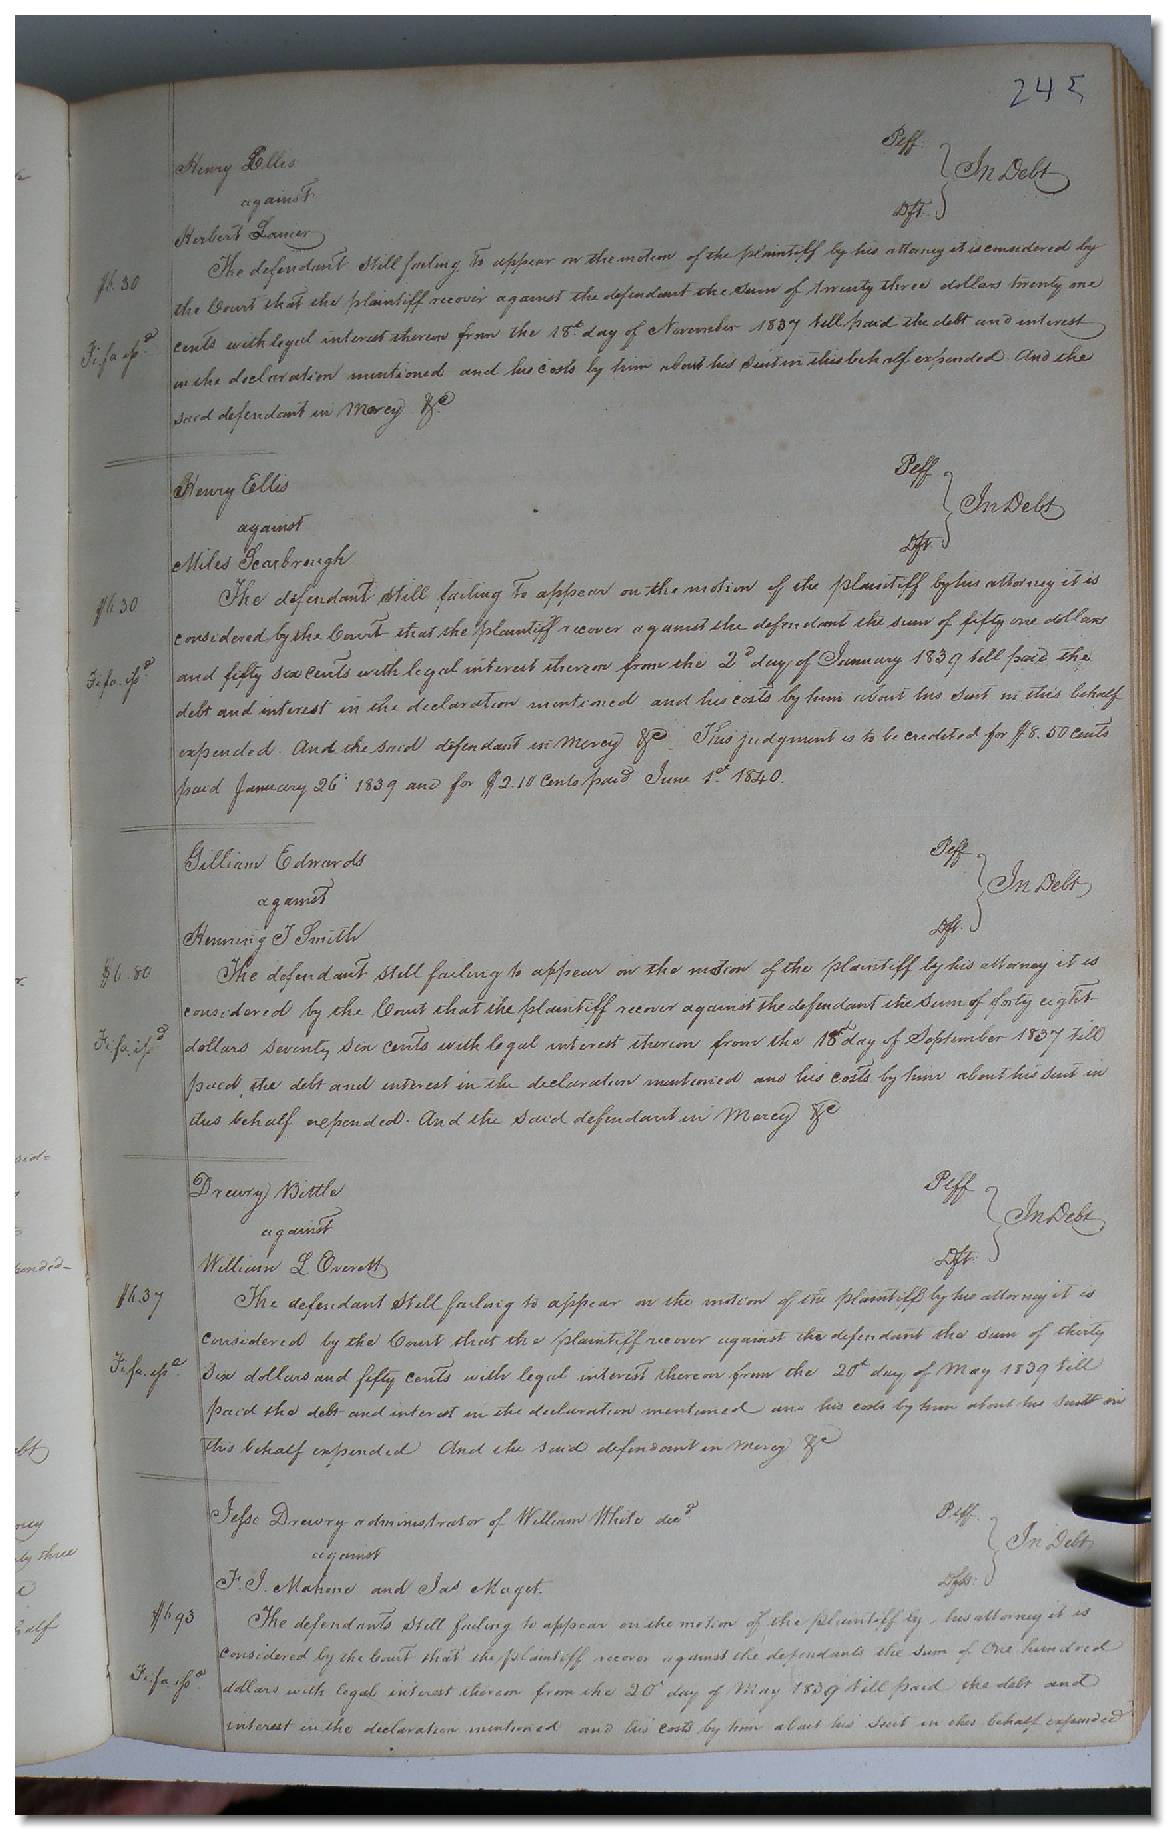 245
Henry Ellis Plff
against In Debt
Herbert Lanier Dft.
$6.30 The defendant still failing to appear on the motion of the plaintiff by his attorney it is considered by
the Court that the plaintiff recover against the defendant the sum of twenty three dollars twenty one
Fi. fa. issd cents with legal interest thereon from the 18t day of November 1837 till paid the debt and interest
in the declaration mentioned and his costs by him about his suit in this behalf expended. And the
said defendant in Mercy &c
Henry Ellis Plff
against In Debt
Miles Scarbrough Dft.
$6.30 The defendant still failing to appear on the motion of the plaintiff by his attorney it is
considered by the Court that the plaintiff recover against the defendant the sum of fifty one dollars
Fi. fa. issd and fifty six cents with legal interest thereon from the 2d day of January 1839 till paid the
debt and interest in the declaration mentioned and his costs by him about his suit in this behalf
expended. And the said defendant in Mercy &c. This judgment is to be credited for $8.50 cents
paid January 26t 1839 and for $2.10 cents paid June 1st 1840.
Gilliam Edwards Plff
against In Debt
Henning T Smith Dft.
$6.80 The defendant still failing to appear on the motion of the plaintiff by his attorney it is
considered by the Court that the plaintiff recover against the defendant the sum of forty eight
Fi. fa. issd dollars seventy six cents with legal interest thereon from the 18t day of September 1837 till
paid, the debt and interest in the declaration mentioned and his costs by him about his suit in
this behalf expended. And the said defendant in Mercy &c
Drewry Bittle Plff
against In Debt
William L Everett Dft.
$6.37 The defendant still failing to appear on the motion of the plaintiff by his attorney it is
considered by the Court that the plaintiff recover against the defendant the sum of thirty
Fi. fa. issd six dollars and fifty cents with legal interest thereon from the 20t day of May 1839 till
paid the debt and interest in the declaration mentioned and his costs by him about his suit in
this behalf expended And the said defendant in Mercy &c
Jesse Drewry administrator of William White decd Plff.
against In Debt
F. J. Mahone and Jas Maget. Dfts.
$6.93 The defendants still failing to appear on the motion of the plaintiff by his attorney it is
considered by the Court that the plaintiff recover against the defendants the sum of One hundred
Fi. fa. issd dollars with legal interest thereon from the 20t day of May 1839 till paid the debt and
interest in the declaration mentioned and his costs by him about his suit in this behalf expended